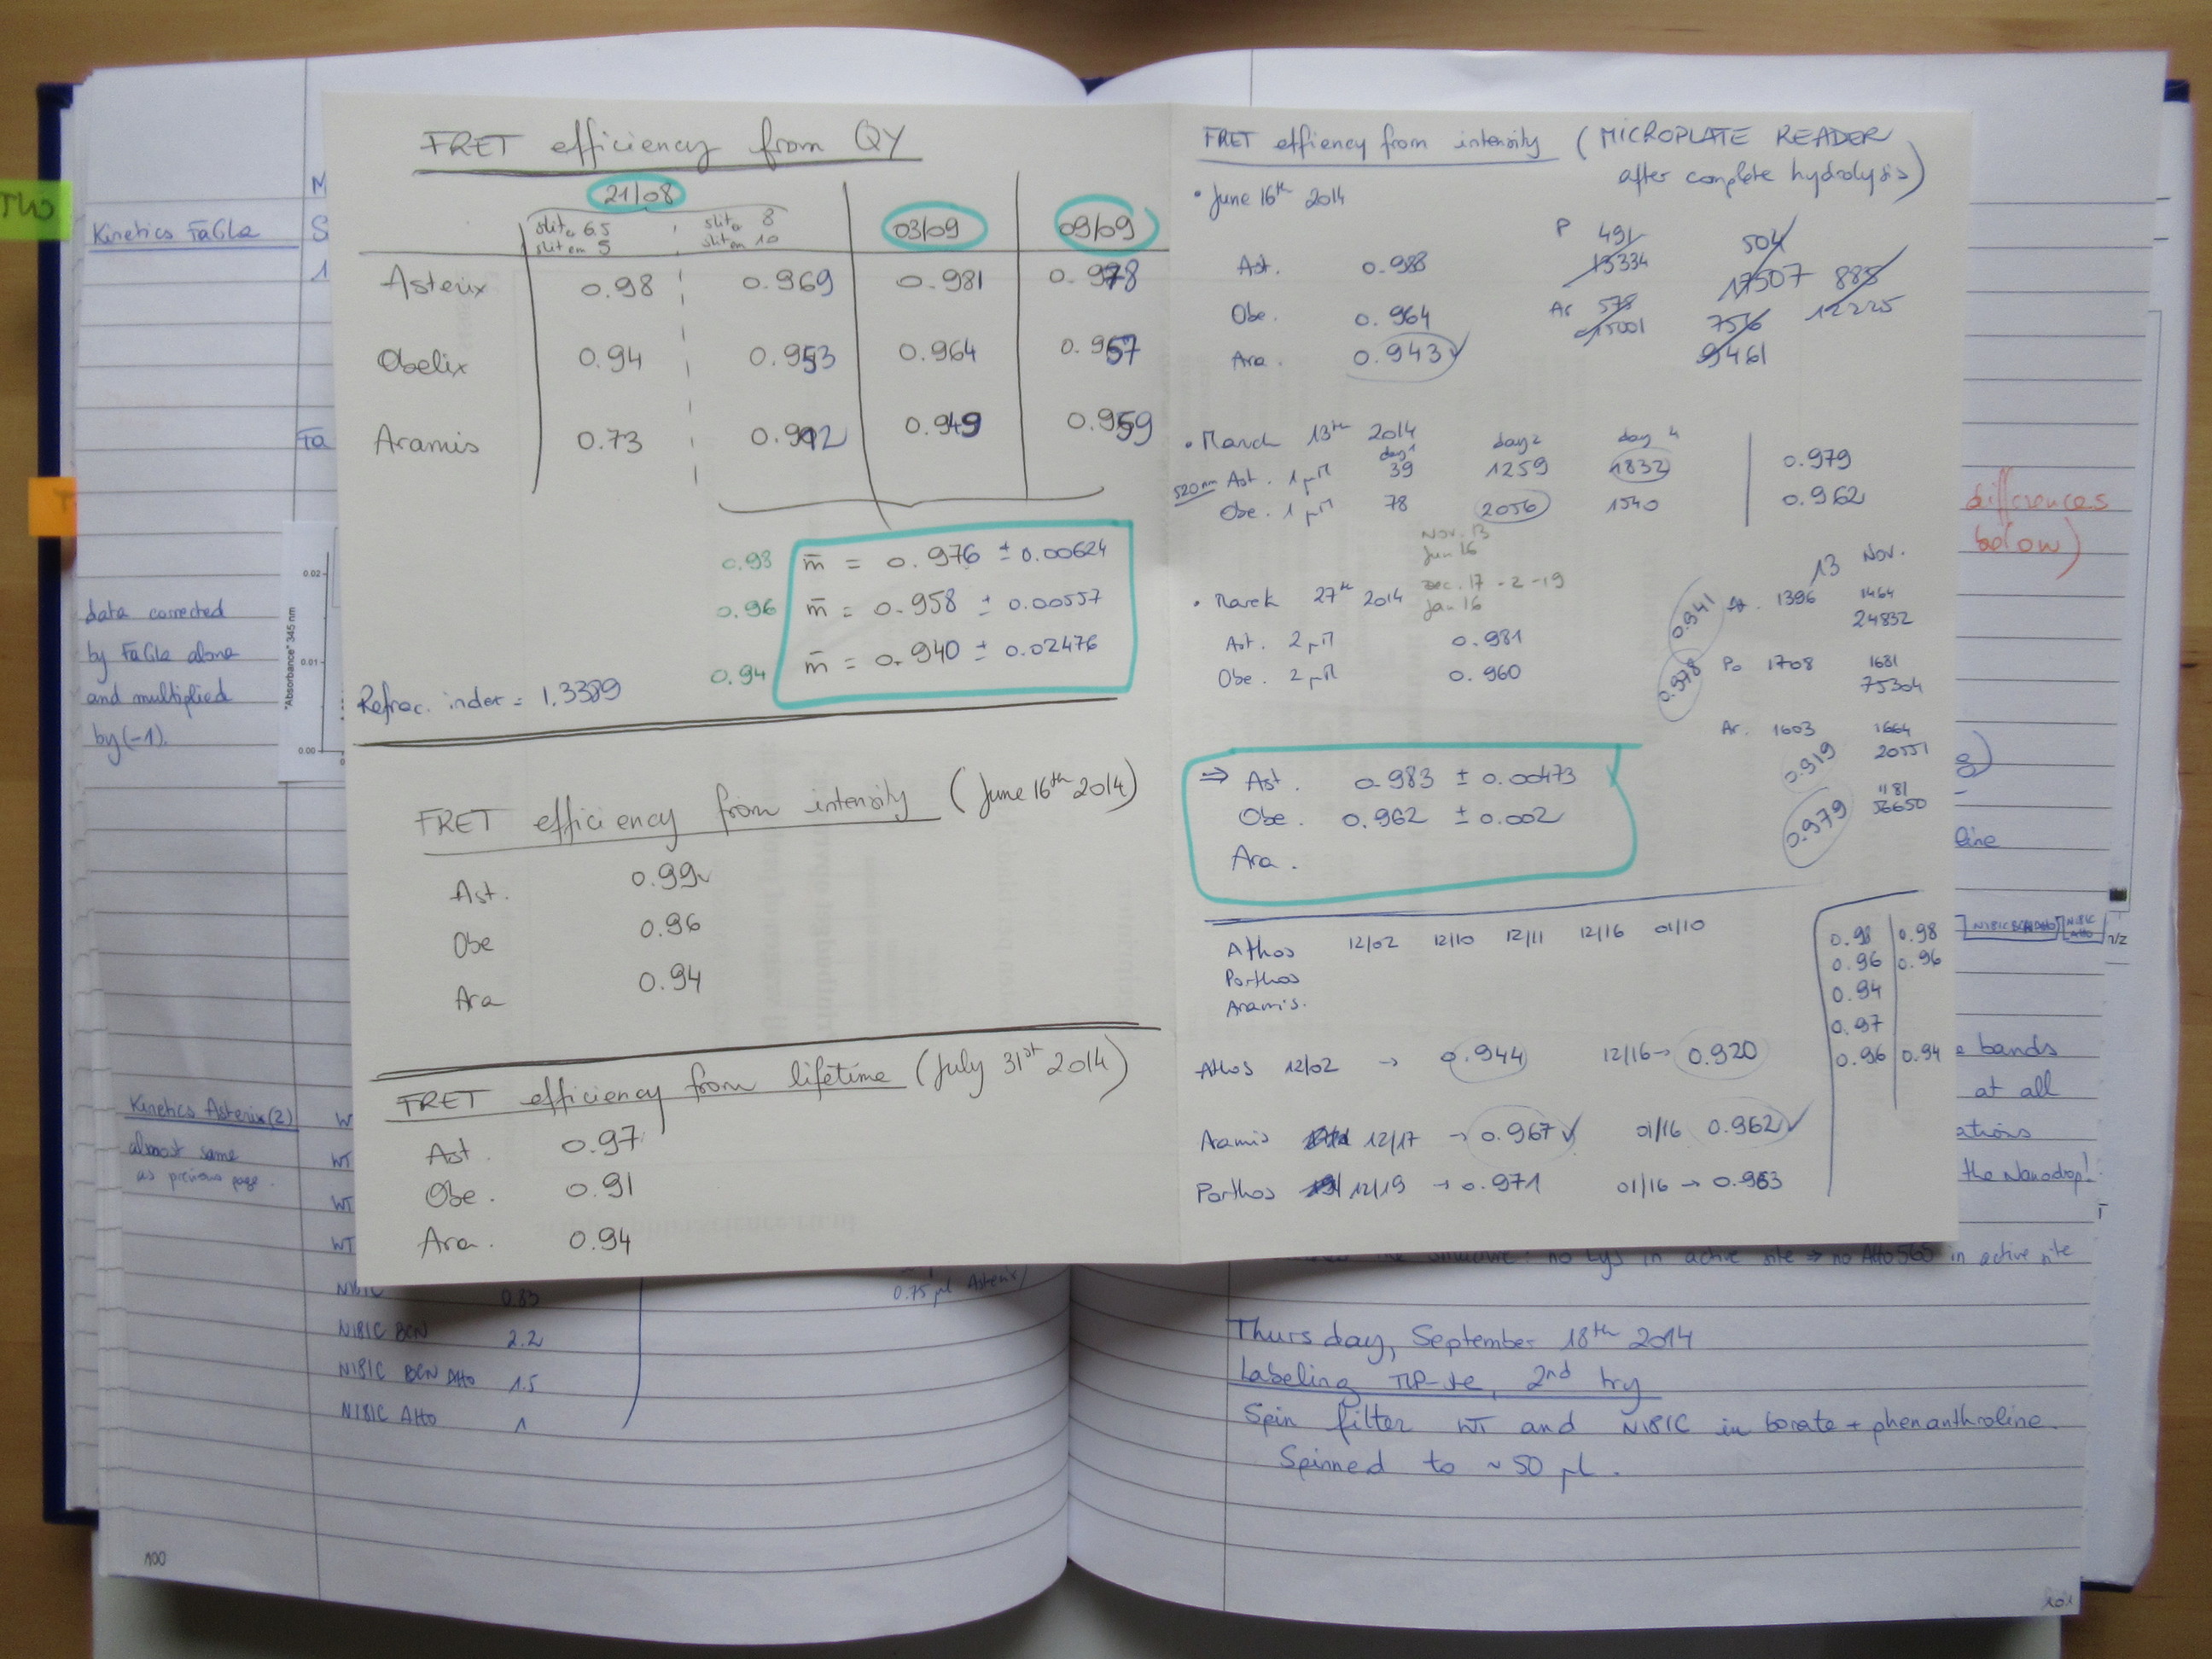 FRET efficiency from QY
21/08
slit 6.5
slit em 5
slit 8
slit em 10
03/09
09/09
Asterix 0.98 0.969 0.981 0.978
Obelix 0.94 0.953 0.964 0.957
Aramis 0.73 0.912 0.949 0.959
0.98 m̄ = 0.976 ± 0.00624
0.96 m̄ = 0.958 ± 0.00557
0.94 m̄ = 0.940 ± 0.02476
Refrac. index = 1.3389
FRET efficiency from intensity (June 16th 2014)
Ast. 0.99
Obe 0.96
Ara 0.94
FRET efficiency from lifetime (July 31st 2014)
Ast. 0.97
Obe. 0.91
Ara. 0.94
FRET effiency from intensity (MICROPLATE READER
after complete hydrolysis)
• June 16th 2014
Ast. 0.988
Obe. 0.964
Ara. 0.943
P 491 504
13334 17507 885
Ar 578 756 12225
15001 9461
• March 13th 2014
day 1 day 2 day 4
520nm Ast. 1 µM 39 1259 1832 0.979
Obe. 1 µM 78 2056 1540 0.962
Nov. 13
Jun 16
• March 27th 2014 Dec. 17 - 2 - 19
Jan 16
Ast. 2 µM 0.981
Obe. 2 µM 0.960
13 Nov.
0.941 1396 1464
24832
0.978 Po 1708 1681
75304
Ar. 1603 1664
0.919 20551
1181
0.979 56650
⇒ Ast. 0.983 ± 0.00473
Obe. 0.962 ± 0.002
Ara.
Athos 12/02 12/10 12/11 12/16 01/10
Porthos
Aramis.
0.98 0.98
0.96 0.96
0.94
0.97
0.96 0.94
Athos 12/02 → 0.944 12/16 → 0.920
Aramis 12/17 → 0.967 01/16 0.962
Porthos 12/19 → 0.971 01/16 → 0.963
Kinetics FaGLa
data corrected
by FaGLa alone
and multiplied
by (-1).
"Absorbance" 345 nm
0.02
0.01
0.00
Kinetics Asterix (2)
almost same
as previous page.
W
WT
WT
WT
0.83
0.75 µl Asterix
N181C BCN 2.2
N181C BCN Atto 1.5
N181C Atto 1
100
differences
below)
line
N181C BCN Atto
N181C Atto
m/z
bands
at all
ations
the Nanodrop!
no Lys in active site → no Atto 565 in active site
Thursday, September 18th 2014
Labeling TLP-ste, 2nd try
Spin filter WT and N181C in borate + phenanthroline.
Spinned to ~ 50 µL.
101